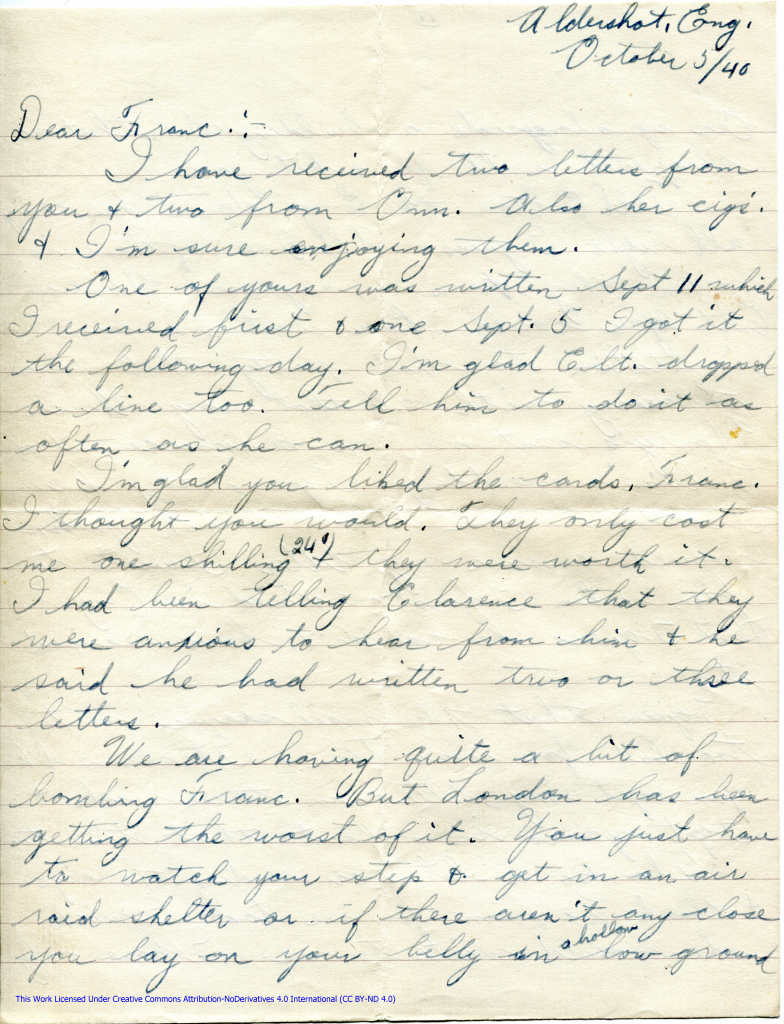 Aldershot, Eng.
October 5/40
Dear Franc.:-
I have received two letters from
you & two from Ann. Also her cigs.
& I'm sure enjoying them.
One of yours was written Sept 11 which
I received first & one Sept. 5 I got it
the following day. I'm glad Elt. dropped
a line too. Tell him to do it as
often as he can.
I'm glad you liked the cards, Franc.
I thought you would. They only cost
me one shilling (24¢) & they were worth it.
I had been telling Clarence that they
were anxious to hear from him & he
said he had written two or three
letters.
We are having quite a bit of
bombing Franc. But London has been
getting the worst of it. You just have
to watch your step & get in an air
raid shelter or if there aren't any close
you lay on your belly in a hollow low ground
This Work Licensed Under Creative Commons Attribution-NoDerivatives 4.0 International (CC BY-ND 4.0)